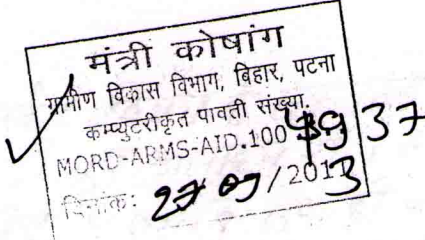 मंत्री कोषांग
ग्रामीण विकास विभाग, बिहार, पटना
कम्प्युटरीकृत पावती संख्या.
MORD-ARMS-AID.100 37
दिनांक: 27 /2013